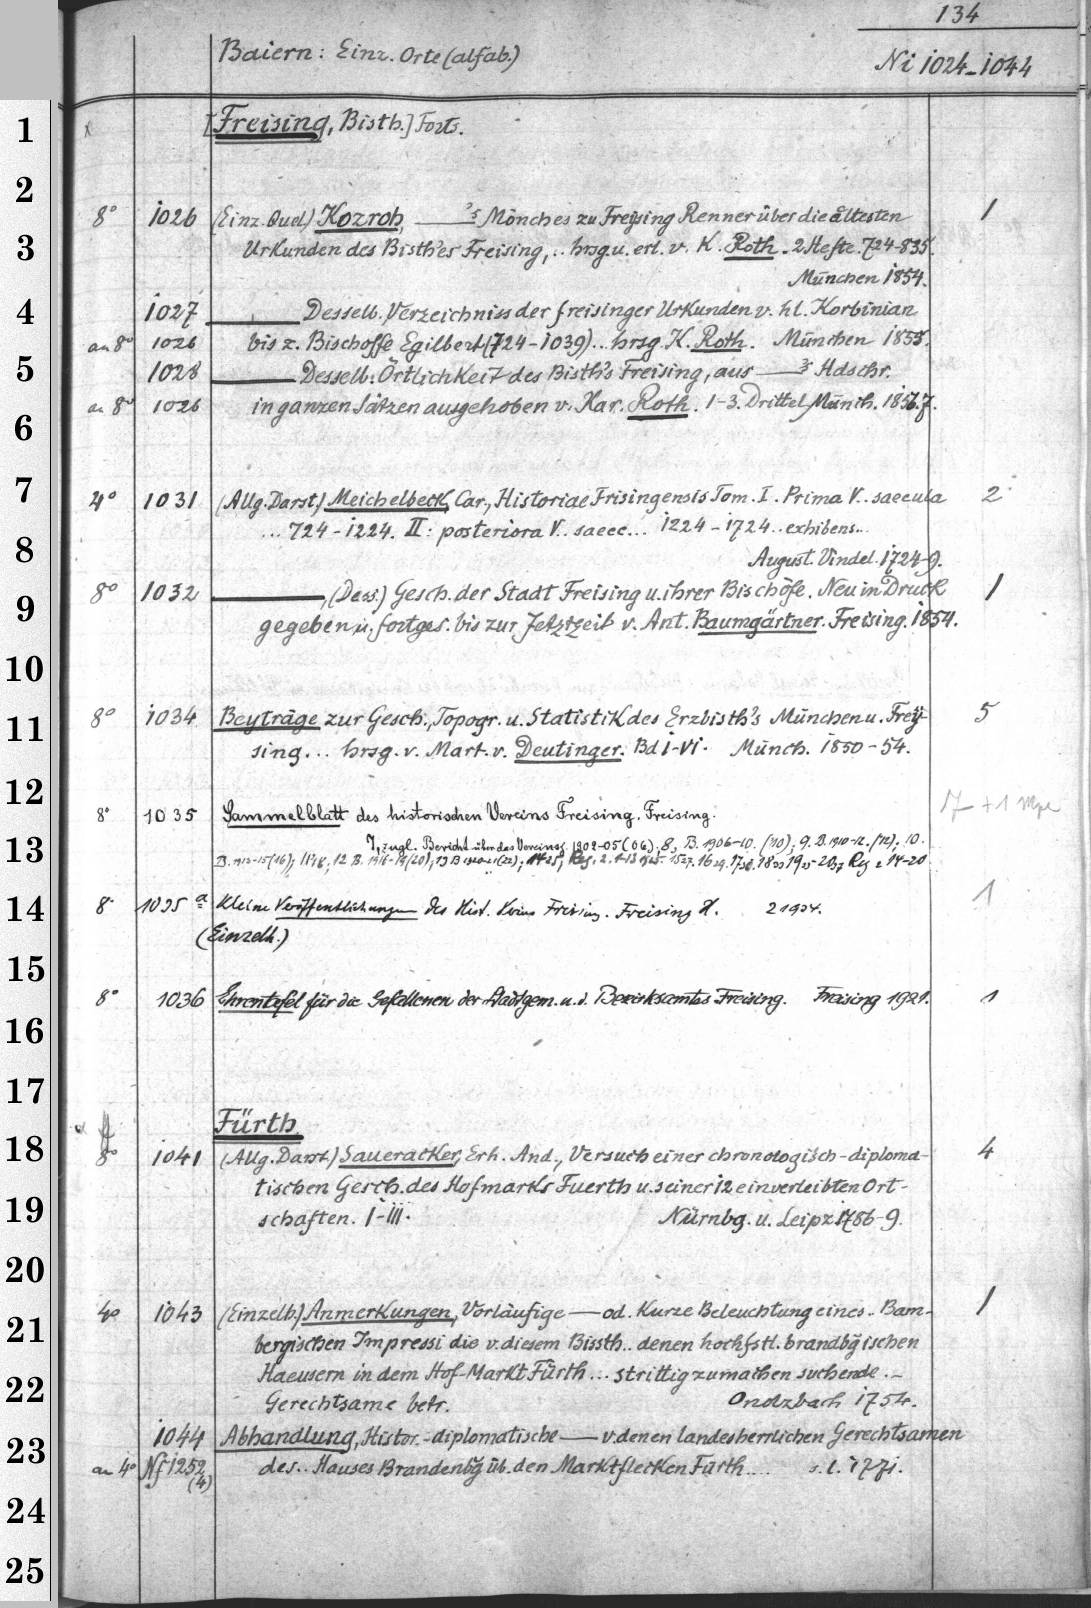 134
Baiern: Einz. Orte (alfab.)
Ni 1024-1044
1
[Freising, Bisth.] Forts.
2
8° 1026 (Einz. Quel.) Kozroh, ———'s Mönches zu Freysing Renner über die ältesten 1
3
Urkunden des Bisth'es Freising, .. hrsg. u. erl. v. K. Roth. 2 Hefte. 724-835.
München 1854.
4
1027 ——— Desselb. Verzeichniss der freisinger Urkunden v. hl. Korbinian
an 8° 1026 bis z. Bischoffe Egilbert (724-1039)... hrsg. K. Roth. München 1855.
5
1028 ——— Desselb. Örtlichkeit des Bisth's Freising, aus ——'s Hdschr.
an 8° 1026 in ganzen Sätzen ausgehoben v. Kar. Roth. 1-3. Drittel. Münch. 1856.7.
6
7
4° 1031 (Allg. Darst.) Meichelbeck, Car., Historiae Frisingensis Tom. I. Prima V.. saecula 2
... 724-1224. II: posteriora V.. saec... 1224-1724.. exhibens...
8
August. Vindel. 1724-9.
8° 1032 ———, (Dess.) Gesch. der Stadt Freising u. ihrer Bischöfe. Neu in Druck 1
9
gegeben u. fortges. bis zur Jetztzeit v. Ant. Baumgärtner. Freising. 1854.
10
8° 1034 Beyträge zur Gesch., Topogr. u. Statistik des Erzbisth's München u. Frey- 5
11
sing... hrsg. v. Mart. v. Deutinger. Bd I-VI. Münch. 1850-54.
12
8° 1035 Sammelblatt des historischen Vereins Freising. Freising.
13
7, zugl. Bericht über das Vereinsj. 1902-05 (06); 8, B. 1906-10. (10); 9. B. 1910-12. (12); 10.
14
8° 1035 a Kleine Veröffentlichungen des Hist. Vereins Freising. Freising H. 2 1924. 1
(Einzelh.)
15
8° 1036 Ehrentafel für die Gefallenen der Stadtgem. u. d. Bezirksamtes Freising. Freising 1921. 1
16
17
Fürth
18
8° 1041 (Allg. Darst.) Saueracker, Erh. And., Versuch einer chronologisch-diploma- 4
tischen Gesch. des Hofmarks Fuerth u. seiner 12 einverleibten Ort-
19
schaften. I-III. Nürnbg. u. Leipz 1786-9.
20
4° 1043 (Einzelb.) Anmerkungen, Vorläufige —— od. Kurze Beleuchtung eines.. Bam- 1
21
bergischen Impressi die v. diesem Bissth.. denen hochfstl. brandbg̃ischen
Haeusern in dem Hof-Markt Fürth... strittig zumachen suchende..
22
Gerechtsame betr. Onolzbach 1754.
1044 Abhandlung, Histor.-diplomatische —— v. denen landesherrlichen Gerechtsamen
23
an 4° Nf 1252 (4) des.. Hauses Brandenbg̃ üb. den Marktflecken Fürth.... s. l. 1771.
24
25